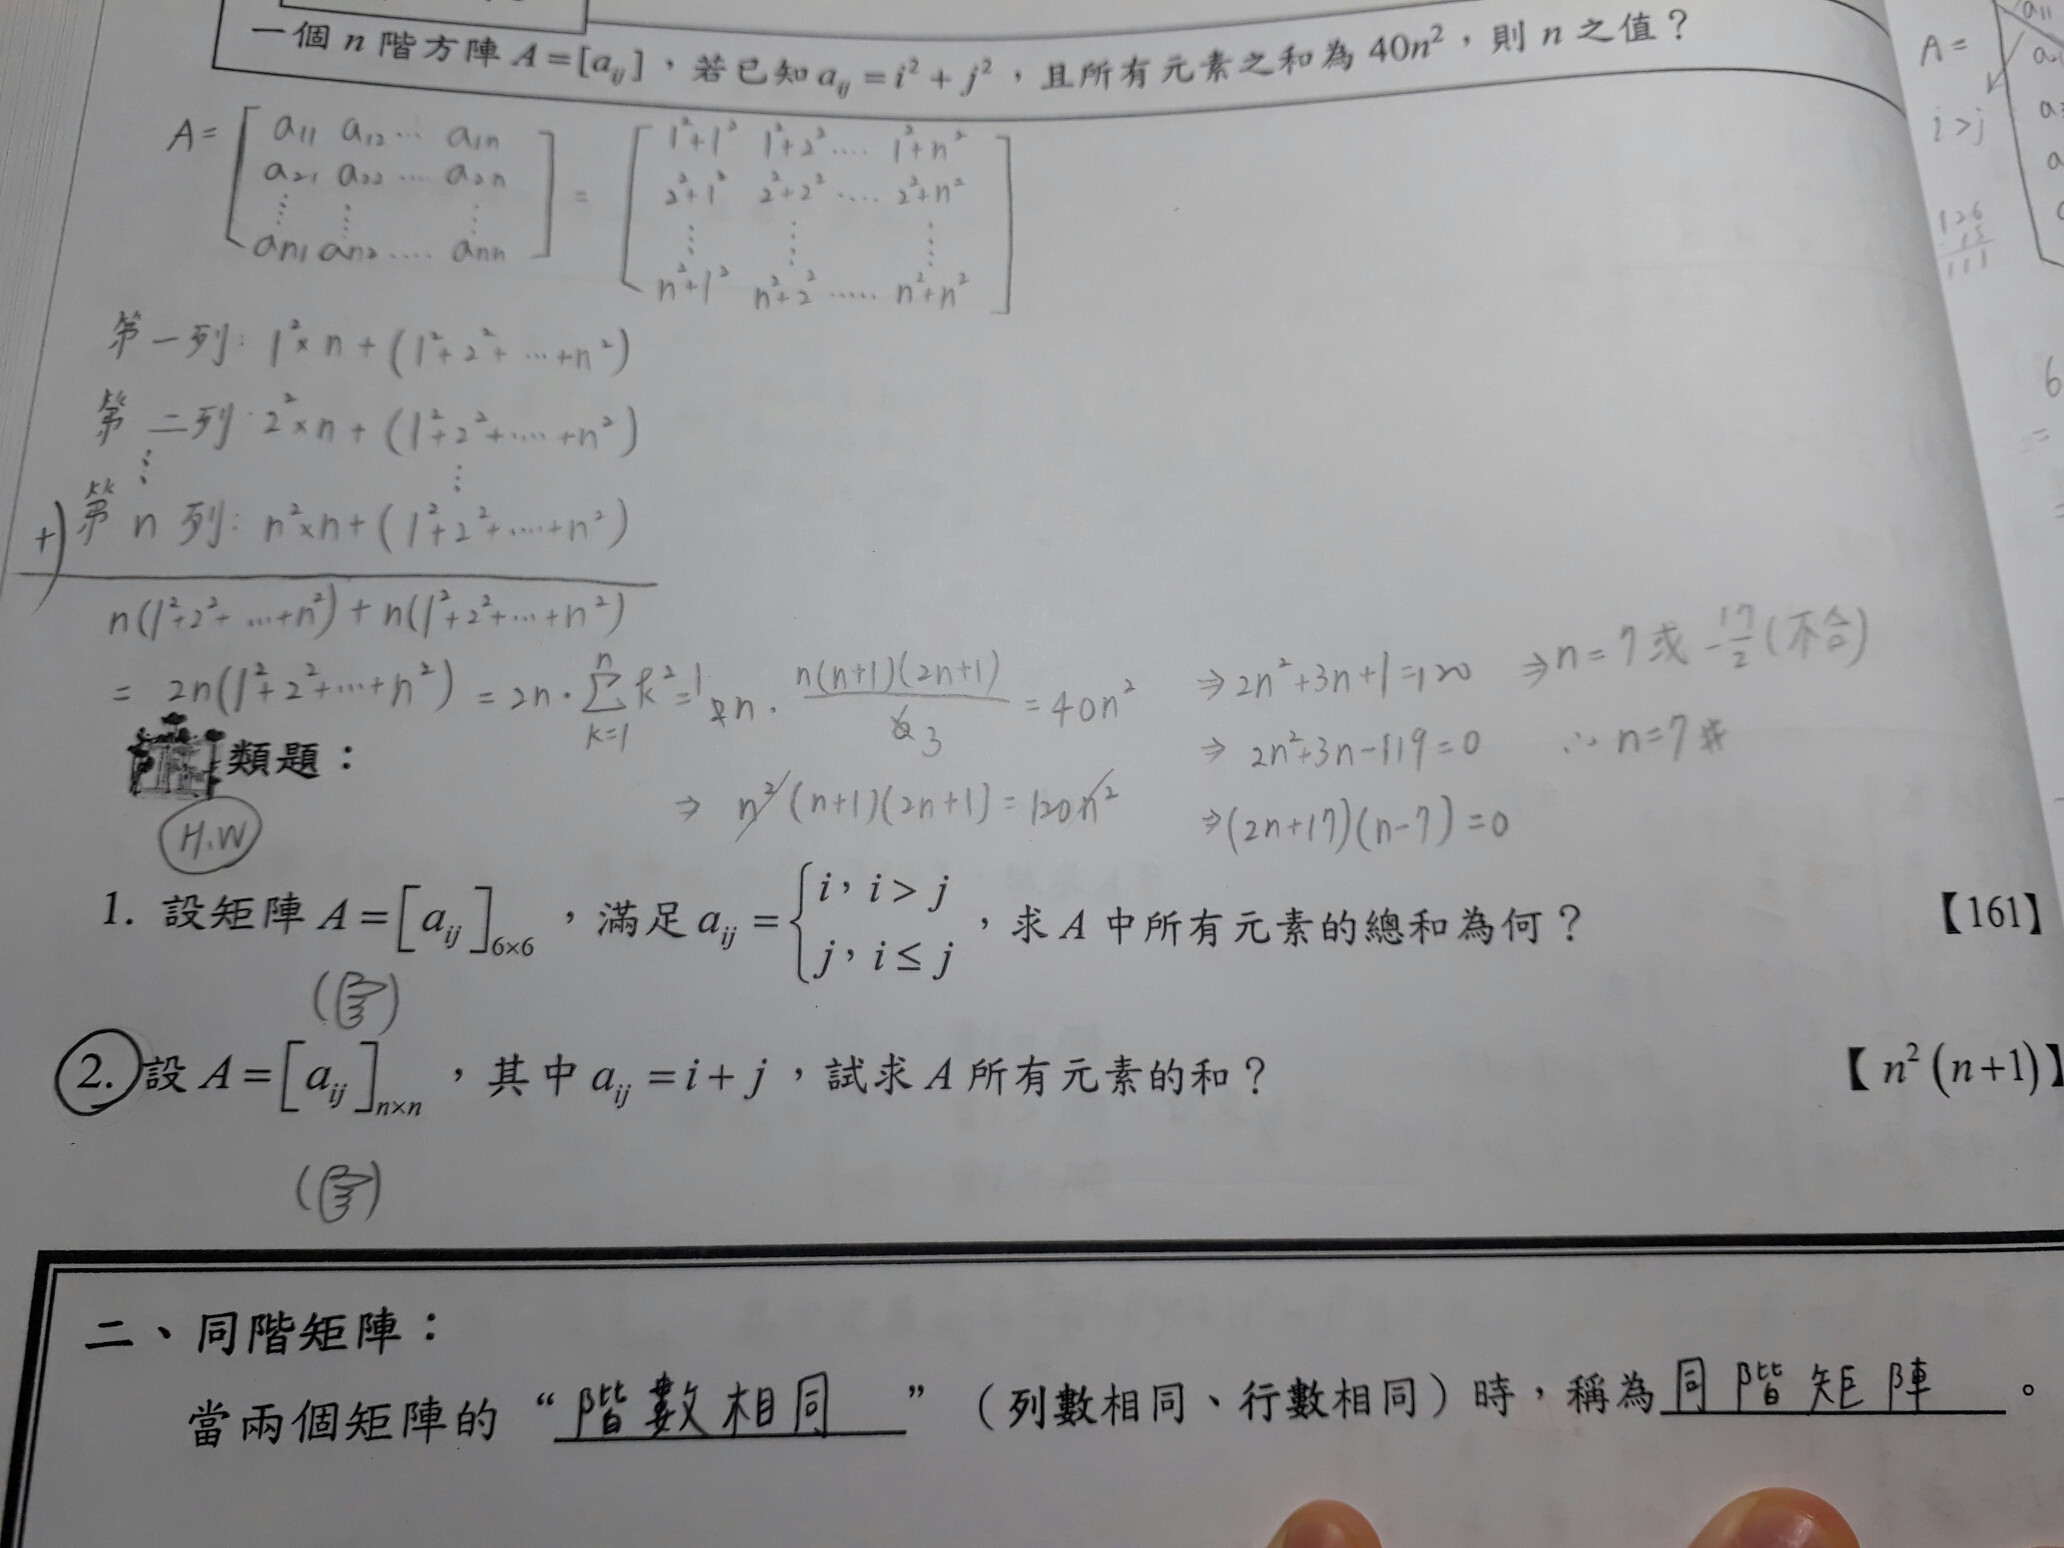 一個 n 階方陣 A=[aᵢⱼ]，若已知 aᵢⱼ = i² + j²，且所有元素之和為 40n²，則 n 之值？
A = [a₁₁ a₁₂ … a₁ₙ
a₂₁ a₂₂ … a₂ₙ
⋮ ⋮ ⋮
aₙ₁ aₙ₂ …. aₙₙ] = [1²+1² 1²+2² …. 1²+n²
2²+1² 2²+2² …. 2²+n²
⋮ ⋮ ⋮
n²+1² n²+2² ….. n²+n²]
第一列: 1²×n + (1²+2²+ … +n²)
第二列: 2²×n + (1²+2²+ …. +n²)
⋮ ⋮
+) 第 n 列: n²×n + (1²+2²+ …. +n²)
n(1²+2²+ … +n²) + n(1²+2²+ … +n²)
= 2n(1²+2²+ … +n²) = 2n · Σₖ₌₁ⁿ k² = ¹2n · n(n+1)(2n+1)/6 3 = 40n²
⇒ n²(n+1)(2n+1) = 120n²
⇒ 2n²+3n+1=120
⇒ 2n²+3n-119=0
⇒ (2n+17)(n-7)=0
⇒ n=7 或 -17/2 (不合)
∴ n=7 #
類題：
H.W
1. 設矩陣 A=[aᵢⱼ]₆ₓ₆，滿足 aᵢⱼ = { i，i > j
j，i ≤ j，求 A 中所有元素的總和為何？ 【161】
2. 設 A=[aᵢⱼ]ₙₓₙ，其中 aᵢⱼ = i + j，試求 A 所有元素的和？ 【n²(n+1)】
二、同階矩陣：
當兩個矩陣的“階數相同”（列數相同、行數相同）時，稱為同階矩陣。
A =
a₁₁
i > j
126
15
111
6
=